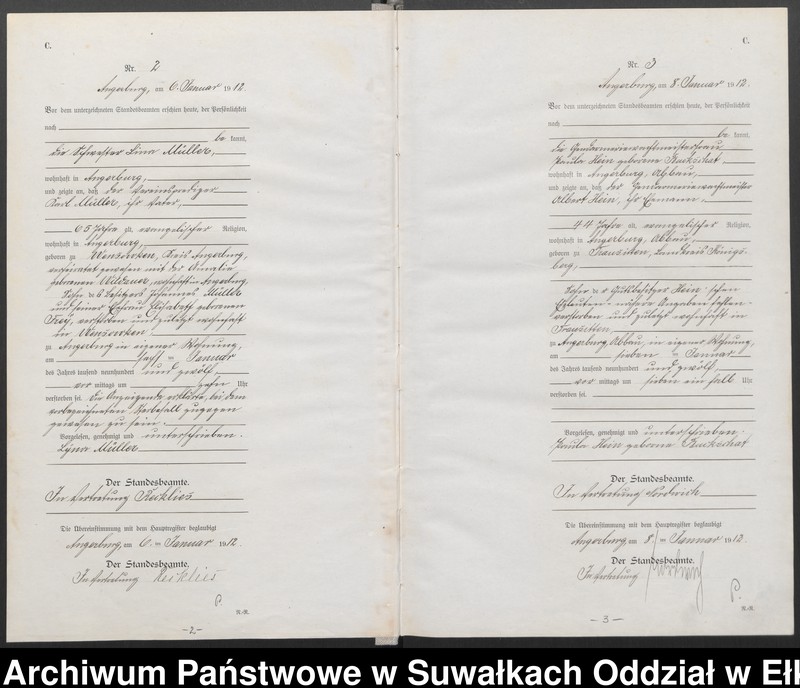 C.
Nr. 2
Angerburg, am 6. Januar 1912.
Vor dem unterzeichneten Standesbeamten erschien heute, der Persönlichkeit
nach
be kannt,
die Schwester Lina Müller,
wohnhaft in Angerburg,
und zeigte an, daß der Vereinsprediger
Karl Müller, ihr Vater,
65 Jahre alt, evangelischer Religion,
wohnhaft in Angerburg,
geboren zu Wensowken, Kreis Angerburg,
verheiratet gewesen mit der Amalie
geborenen, wohnhaft in Angerburg,
Sohn des Besitzers Johannes Müller
und seiner Ehefrau Elisabeth geborenen
Frey, verstorben und zuletzt wohnhaft
in Wensowken
zu Angerburg in eigener Wohnung,
am fünften Januar
des Jahres tausend neunhundert und zwölf,
vor mittags um zehn Uhr
verstorben sei. Die Anzeigende erklärte, bei dem
vorbezeichneten Sterbefall zugegen
gewesen zu sein.
Vorgelesen, genehmigt und unterschrieben.
Lina Müller
Der Standesbeamte.
In Vertretung Reiklies
Die Übereinstimmung mit dem Hauptregister beglaubigt
Angerburg, am 6. ten Januar 1912.
Der Standesbeamte.
In Vertretung Reiklies
P.
R.-R.
-2-
C.
Nr. 3
Angerburg, am 8. Januar 1912.
Vor dem unterzeichneten Standesbeamten erschien heute, der Persönlichkeit
nach
be kannt,
die Gendarmeriewachtmeisterfrau
Paula Hein geborene Ruckschat
wohnhaft in Angerburg, Abbau,
und zeigte an, daß der Gendarmeriewachtmeister
Albert Hein, ihr Ehemann,
44 Jahre alt, evangelischer Religion,
wohnhaft in Angerburg, Abbau,
geboren zu Transitten, Landkreis Königs-
berg,
Sohn der Gutsbesitzer Hein'schen
Eheleute - nähere Angaben fehlen -
verstorben und zuletzt wohnhaft in
Transitten
zu Angerburg Abbau, in eigener Wohnung,
am sieben ten Januar
des Jahres tausend neunhundert und zwölf,
vor mittags um sieben ein halb Uhr
verstorben sei.
Vorgelesen, genehmigt und unterschrieben.
Paula Hein geborene Ruckschat
Der Standesbeamte.
In Vertretung
Die Übereinstimmung mit dem Hauptregister beglaubigt
Angerburg, am 8. ten Januar 1912.
Der Standesbeamte.
In Vertretung
P.
R.-R.
-3-
Archiwum Państwowe w Suwałkach Oddział w Ełk